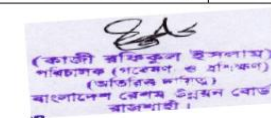 (কাজী রফিকুল ইসলাম)
পরিচালক (গবেষণা ও প্রশিক্ষণ)
(অতিরিক্ত দায়িত্ব)
বাংলাদেশ রেশম উন্নয়ন বোর্ড
রাজশাহী।